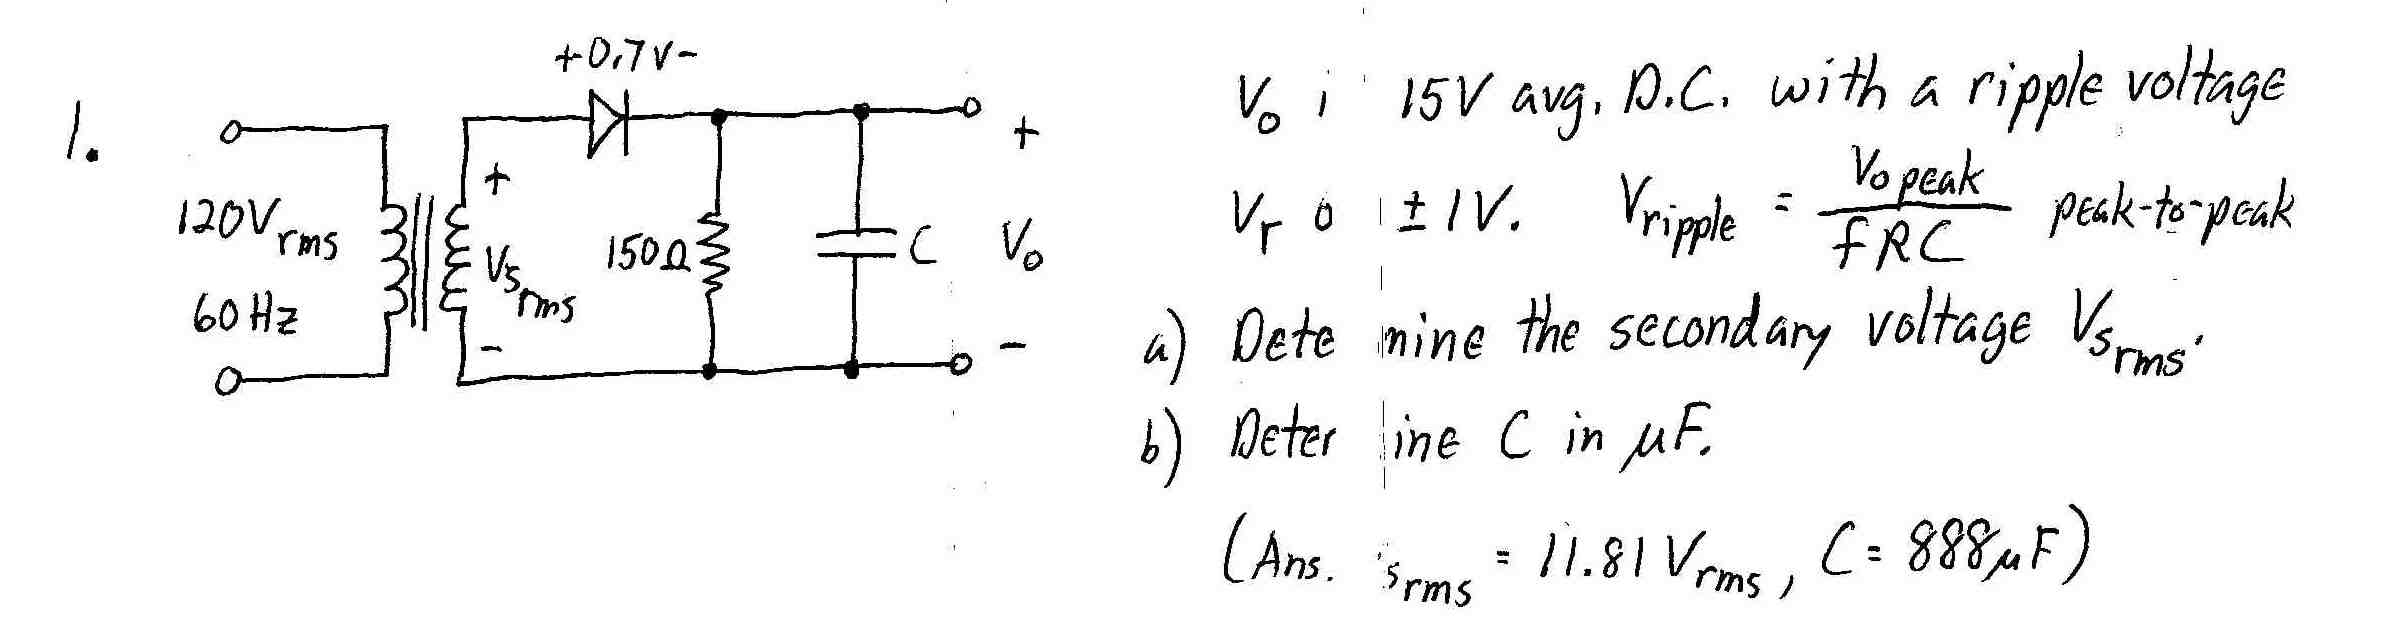 1.
+0.7V-
120Vrms
60 Hz
+
Vsrms
-
150Ω
C
+
Vo
-
Vo i 15V avg. D.C. with a ripple voltage
Vr o ±1V. Vripple = Vo peak / fRC peak-to-peak
a) Dete mine the secondary voltage Vsrms.
b) Deter ine C in µF.
(Ans. srms = 11.81 Vrms, C = 888µF)